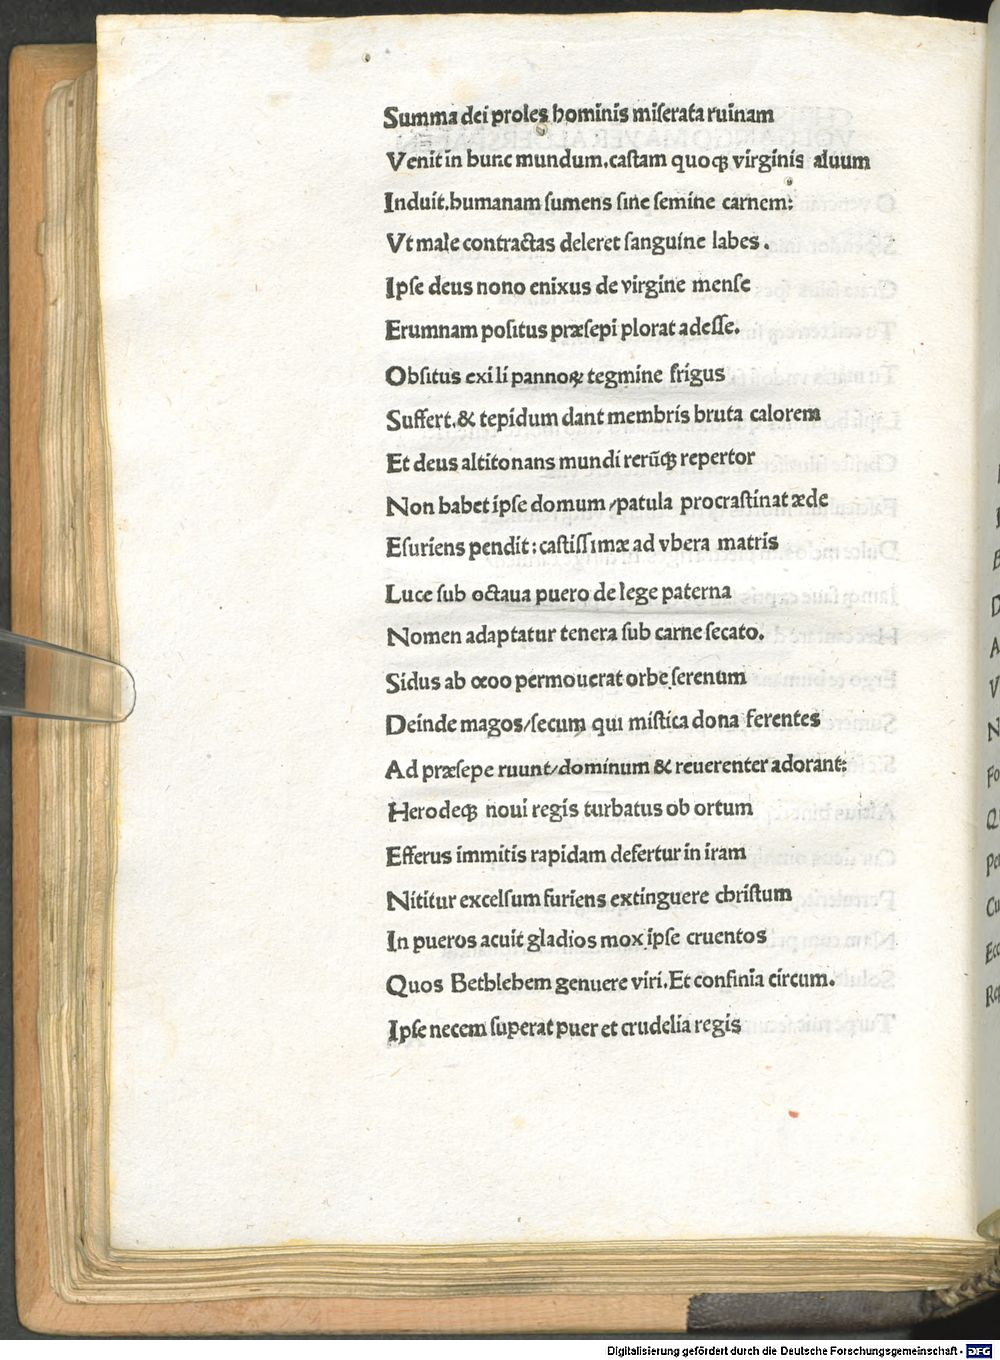 Summa dei proles hominis miſerata ruinam
Venit in hunc mundum.caſtam quoqꝫ virginis aluum
Induit.humanam ſumens ſine ſemine carnem:
Vt male contractas deleret ſanguine labes.
Ipſe deus nono enixus de virgine menſe
Erumnam poſitus præſepi plorat adeſſe.
Obſitus exili pannoꝝ tegmine frigus
Suffert.& tepidum dant membris bruta calorem
Et deus altitonans mundi rerūqꝫ repertor
Non habet ipſe domum/patula procraſtinat æde
Eſuriens pendit:caſtiſſimæ ad vbera matris
Luce ſub octaua puero de lege paterna
Nomen adaptatur tenera ſub carne ſecato.
Sidus ab œoo permouerat orbe ſerenum
Deinde magos/ſecum qui miſtica dona ferentes
Ad præſepe ruunt/dominum & reuerenter adorant:
Herodeqꝫ noui regis turbatus ob ortum
Efferus immitis rapidam defertur in iram
Nititur excelſum furiens extinguere chriſtum
In pueros acuit gladios mox ipſe cruentos
Quos Bethlehem genuere viri.Et confinia circum.
Ipſe necem ſuperat puer et crudelia regis
Digitalisierung gefördert durch die Deutsche Forschungsgemeinschaft - DFG